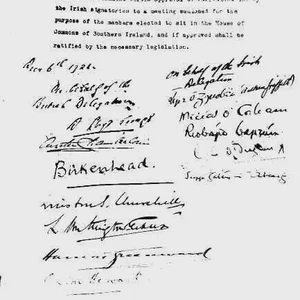 the Irish signatories to a meeting summoned for the
purpose of the members elected to sit in the House of
Commons of Southern Ireland, and if approved shall be
ratified by the necessary legislation.
Dec 6th 1921.
On behalf of the
British Delegation
D Lloyd George
Austen Chamberlain
Birkenhead.
Winston S. Churchill
L Worthington-Evans
Hamar Greenwood
On behalf of the Irish
Delegation
(Arthur Griffith)
Micheál Ó Coileáin
Riobárd Bartún